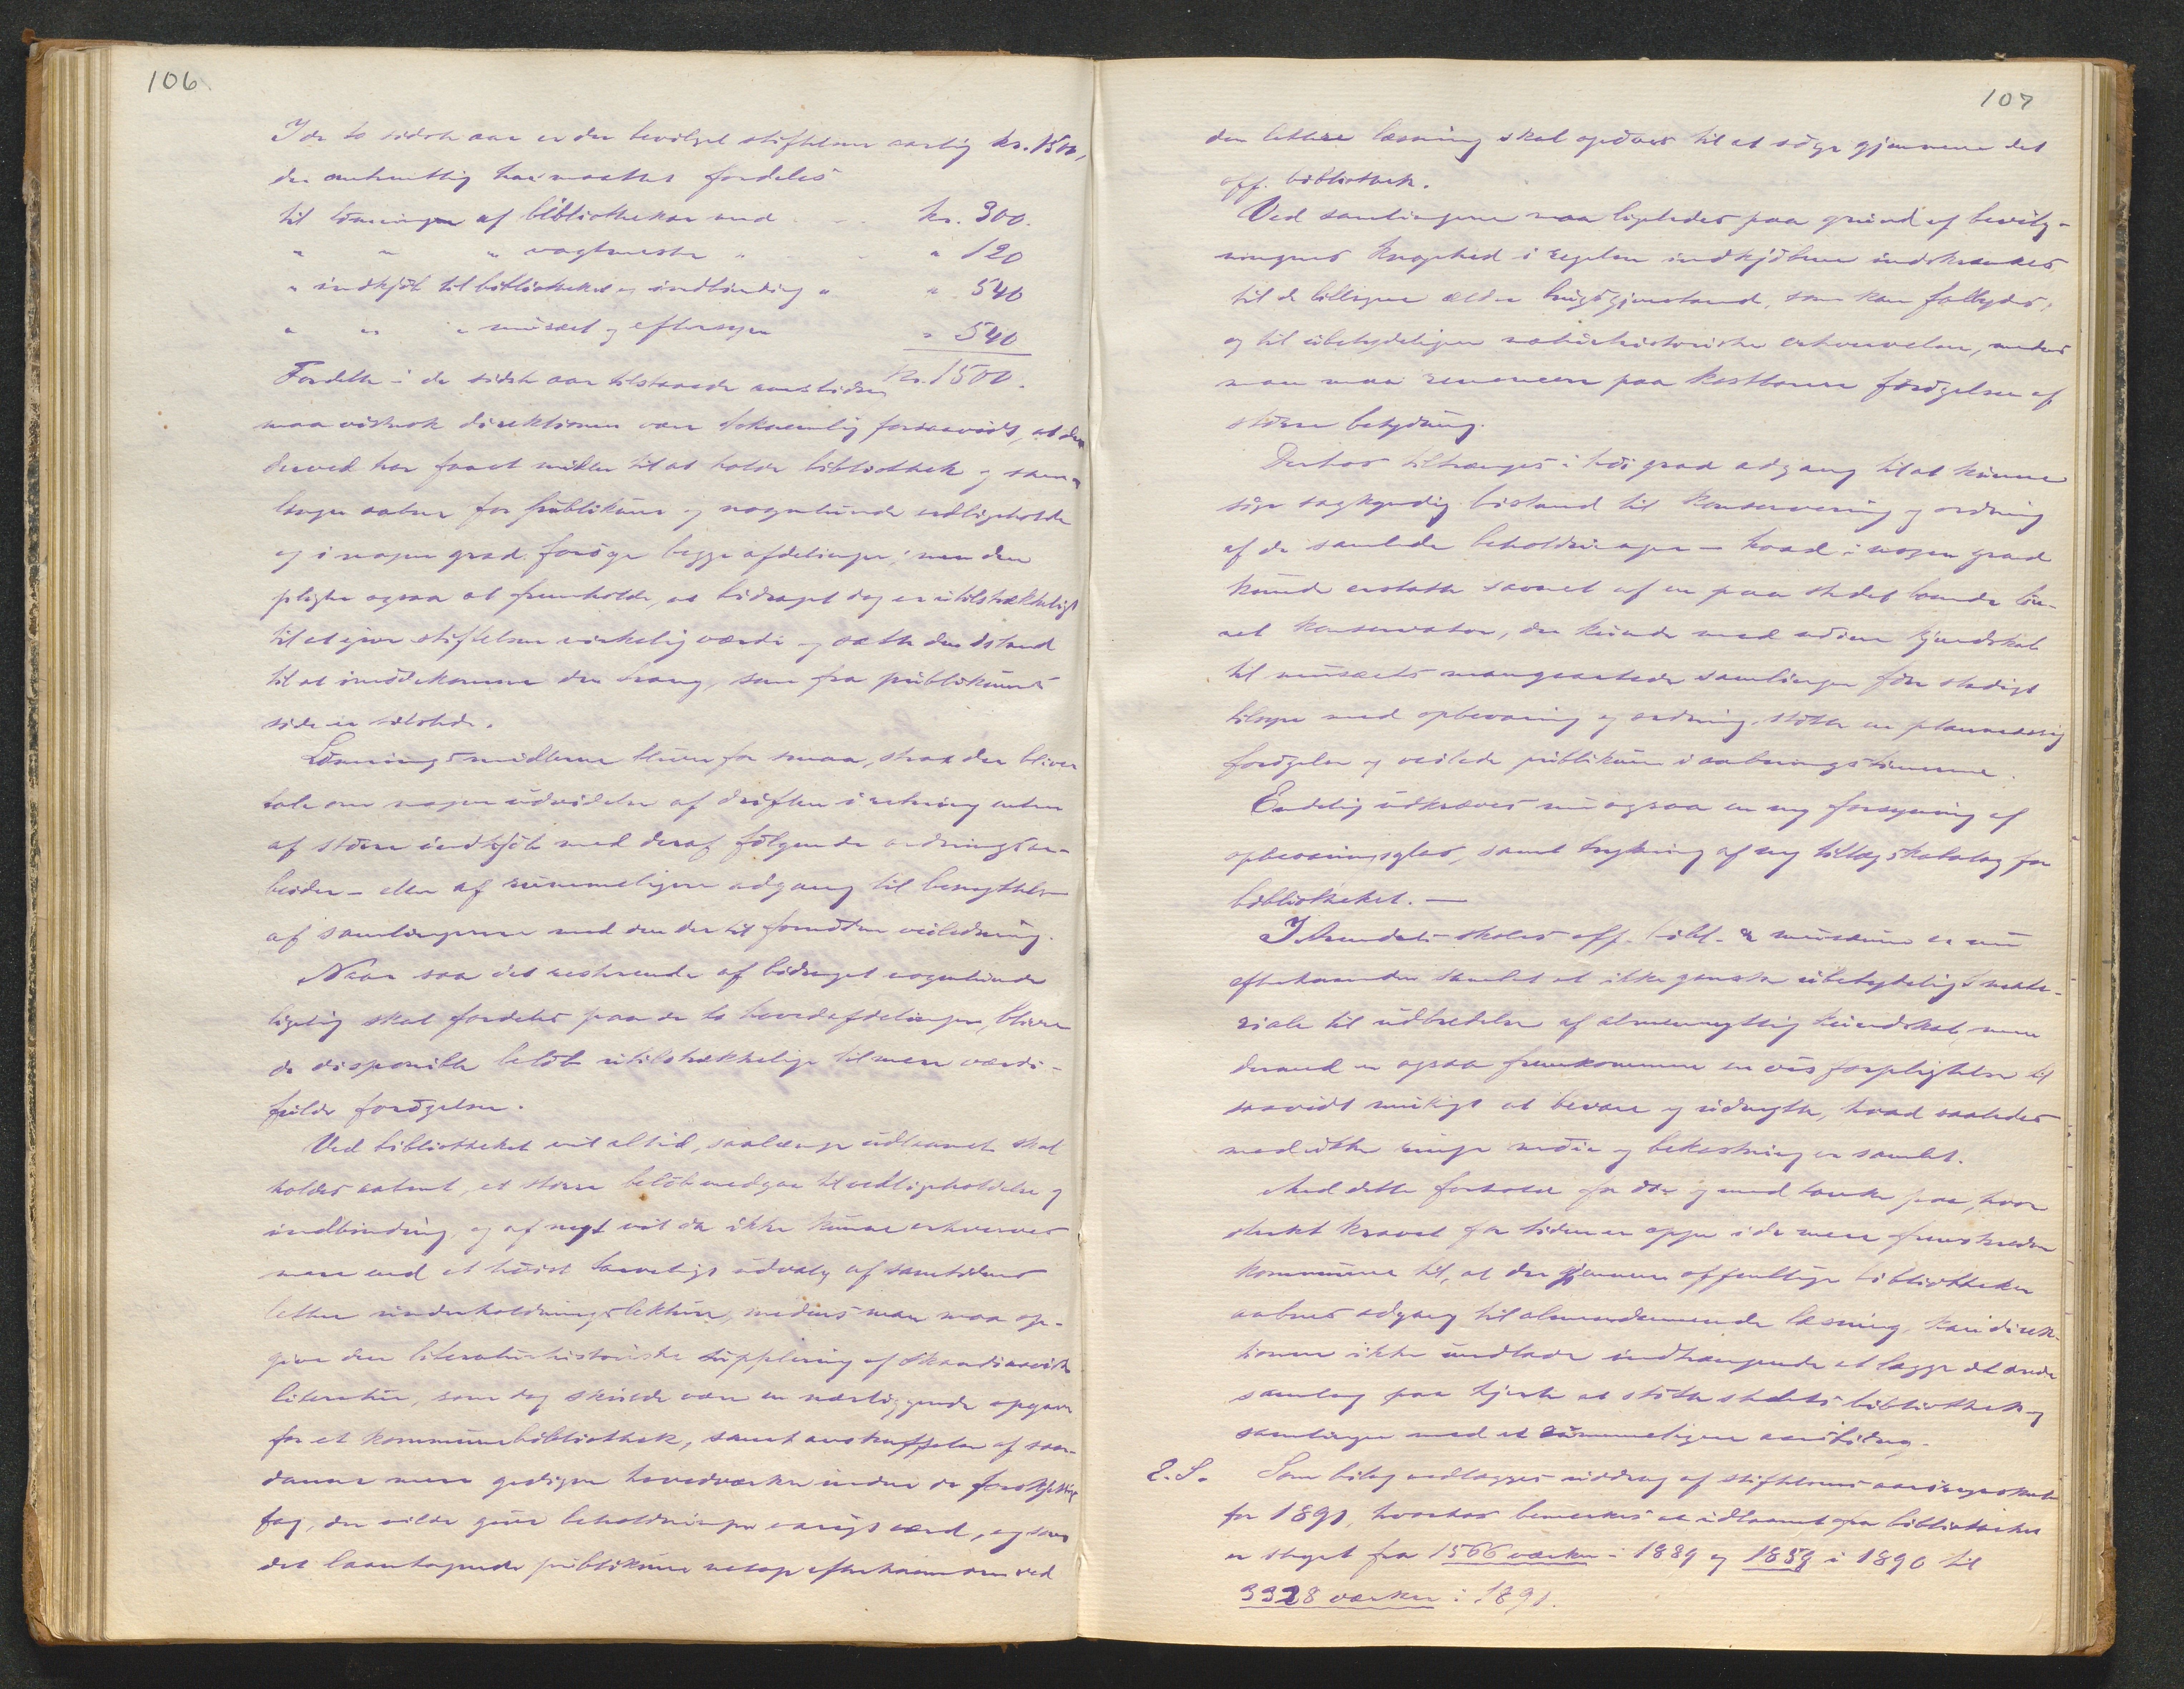 106
I de to sidste aar er der bevilget stiftelsen aarlig kr. 1500,
der omtrentlig har maattet fordeles
til lønninger af bibliothekar med kr. 300.
" " " vagtmester " " 120
" indkjøb til bibliotheket og indbinding " " 540
" " " musæet og eftersyn " 540
kr. 1500.
Fordelte i de sidste aar tilstaaede aarsbidrag
maa vistnok direktionen være taknemlig forsaavidt, at den
derved har faaet midler til at holde bibliothek og sam-
linger aabne for publikum og nogenlunde vedligeholde
og i nogen grad forøge begge afdelinger; men den
pligter ogsaa at fremholde, at bidraget dog er utilstrækkeligt
til at give stiftelsen virkelig værdi og sætte den istand
til at imødekomme den trang, som fra publikums
side er tilstede.
Lønningsmidlerne bliver for smaa, strax der bliver
tale om nogen udvidelse af driften i retning enten
af større indkjøb med deraf følgende ordningsar-
beider – eller af rummeligere adgang til benyttelse
af samlingerne med den dertil fornødne veiledning.
Naar saa det resterende af bidraget nogenlunde
ligelig skal fordeles paa de to hovedafdelinger, bliver
de disponible beløb utilstrækkelige til mere værdi-
fulde forøgelser.
Ved bibliotheket vil altid, saalænge udlaanet skal
holdes aabent, et større beløb medgaa til vedligeholdelse og
indbinding, og af nyt vil der ikke kunne erhverves
mere end et høist tarveligt udvalg af samtidens
lettere underholdningslektüre, medens man maa op-
give den literaturhistoriske supplering af skandinavisk
literatur, som dog skulde være en nærliggende opgave
for et kommunebibliothek, samt anskaffelse af saa-
danne mere gedigne hovedværker inden de forskjellige
fag, der vilde give beholdningen varigt værd, og som
det laantagende publikum netop efterhaanden ved
107
den lettere læsning skal opøves til at søge gjennem det
off. bibliothek.
Ved samlingerne maa ligeledes paa grund af bevilg-
ningens knaphed i regelen indkjøbene indskrænkes
til de billigere ældre brugsgjenstande, som kan falbydes,
og til ubetydeligere naturhistoriske erhvervelser, medens
man maa renoncere paa kostbarere forøgelser af
større betydning.
Derhos tiltrænges i høi grad adgang til at kunne
søge sagkyndig bistand til konservering og ordning
af de samlede beholdninger – hvad i nogen grad
kunde erstatte savnet af en paa stedet boende løn-
net konservator, der kunde med nøiere kjendskab
til musæets mangeartede samlinger føre stadigt
tilsyn med opbevaring og ordning, støtte en planmæssig
forøgelse og veilede publikum i aabningstimerne.
Endelig udkræves nu ogsaa en ny forsyning af
opbevaringsglas, samt trykning af ny tillægskatalog for
bibliotheket. –
I Arendals skoles off. bibl. & musæum er nu
efterhaanden samlet et ikke ganske ubetydeligt mate-
riale til udbredelse af almennyttig kundskab, men
dermed er ogsaa fremkommen en vis forpligtelse til
saavidt muligt at bevare og udnytte, hvad saaledes
med ikke ringe møie og bekostning er samlet.
Med dette forhold for øie og med tanke paa, hvor
sterkt kravet for tiden er oppe i de mere fremskredne
kommuner til, at der gjennem offentlige bibliotheker
aabnes adgang til almendannende læsning, kan direk-
tionen ikke undlade indtrængende at lægge det ærede
samlag paa hjerte at støtte stedets bibliothek og
samlinger med et rummeligere aarsbidrag.
E. S. Som bilag vedlægges uddrag af stiftelsens aarsregnskab
for 1891, hvorhos bemerkes at udlaanet fra bibliotheket
er steget fra 1566 værker i 1889 og 1859 i 1890 til
3328 værker i 1891.